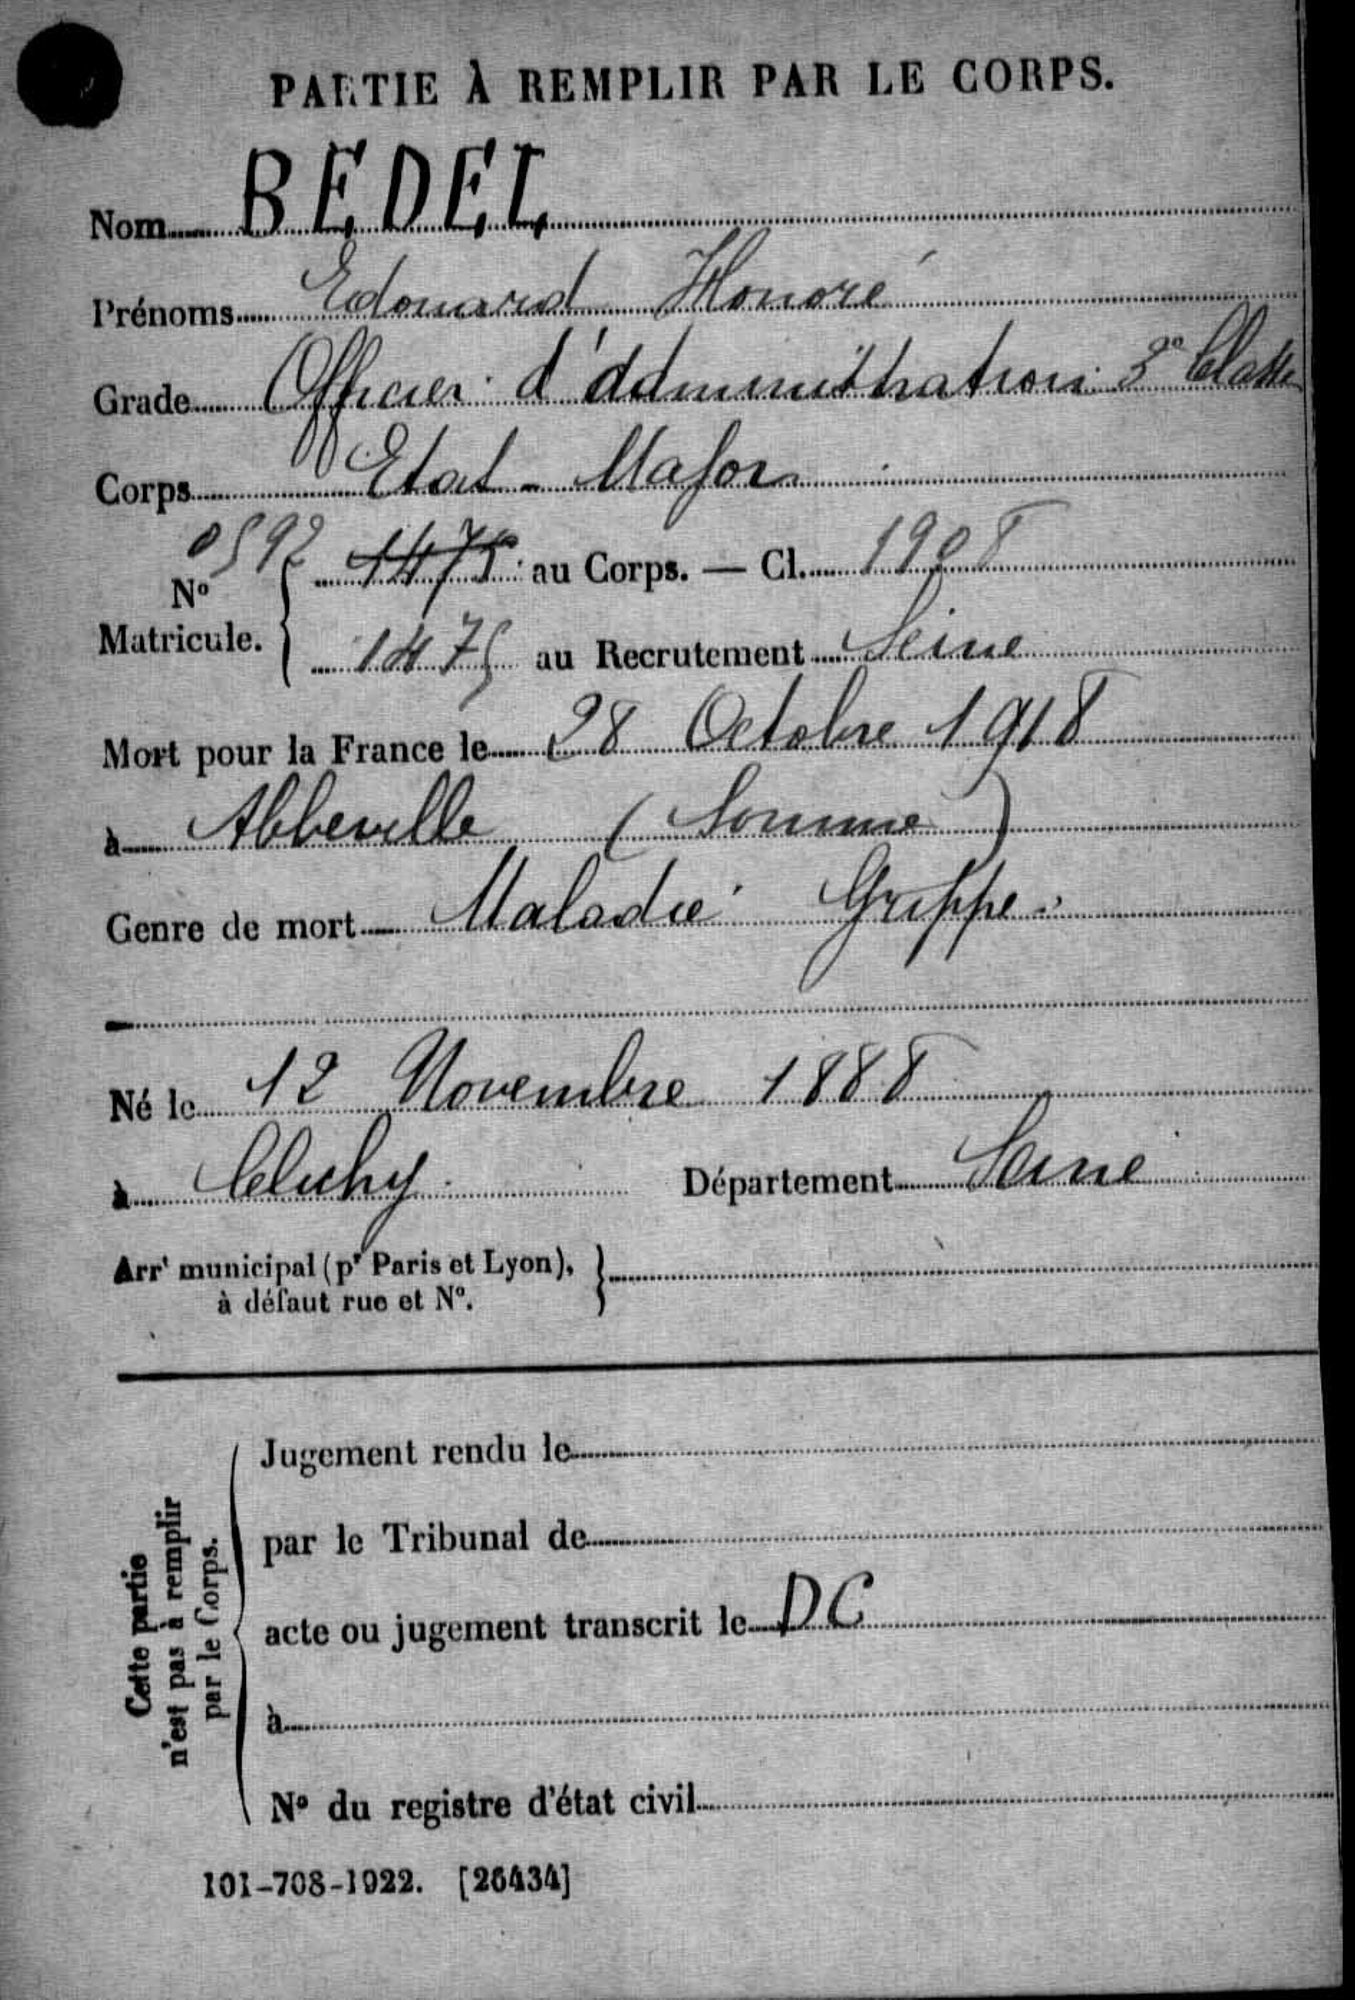 PARTIE À REMPLIR PAR LE CORPS.
Nom BEDEL
Prénoms Edouard Honoré
Grade Officier d'Administration 3e Classe
Corps Etat-Major
0592
No Matricule. { 1475 au Corps. — Cl. 1908
1475 au Recrutement Seine
Mort pour la France le 28 Octobre 1918
à Abbeville (Somme)
Genre de mort Maladie Grippe
Né le 12 Novembre 1888
à Clichy Département Seine
Arrt municipal (pr Paris et Lyon), }
à défaut rue et No.
Cette partie
n'est pas à remplir
par le Corps.
Jugement rendu le
par le Tribunal de
acte ou jugement transcrit le DC
à
No du registre d'état civil
101-708-1922. [26434]